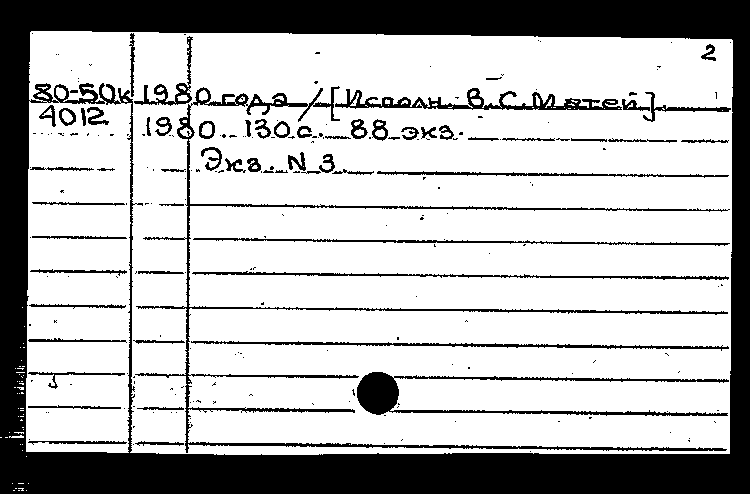 2
80-50к 1980 года / [Исполн. В.С.Матей].
4012 1980. 130 с. 88 экз.
Экз. N 3.